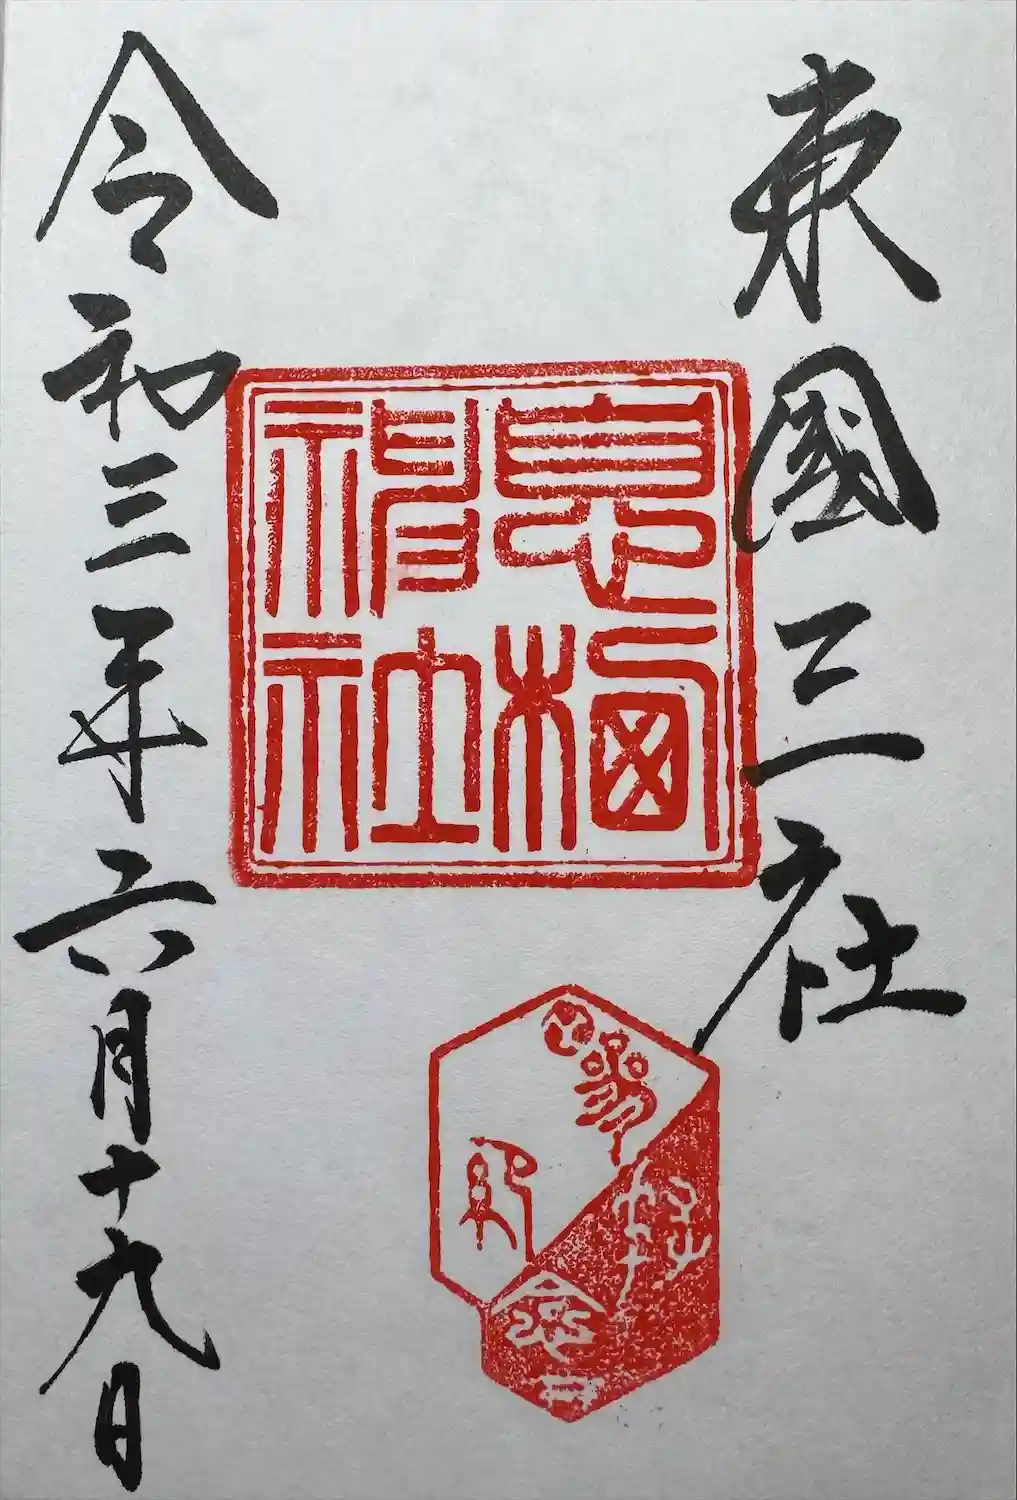 東國三社
息栖
神社
令和三年六月十九日